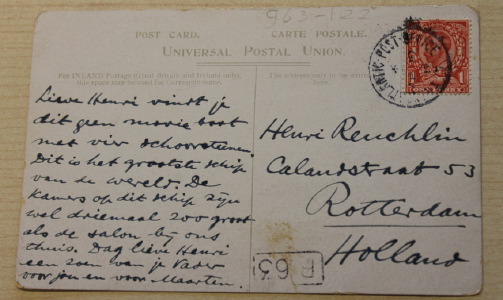 963-122
POST CARD. CARTE POSTALE.
UNIVERSAL POSTAL UNION.
For INLAND Postage (Great Britain and Ireland only), this space may be used for Correspondence.
The address only to be written here.
Lieve Henri vindt je
dit geen mooie boot
met vier schoorsteenen.
Dit is het grootste schip
van de wereld. De
kamers op dit schip zijn
wel driemaal zoo groot
als de salon bij ons
thuis. Dag lieve Henri
een zoen van je Vader
voor jou en voor Maarten.
Henri Reuchlin
Calandstraat 53
Rotterdam
Holland
ATLANTIC POST OFFICE
1 1
R 63